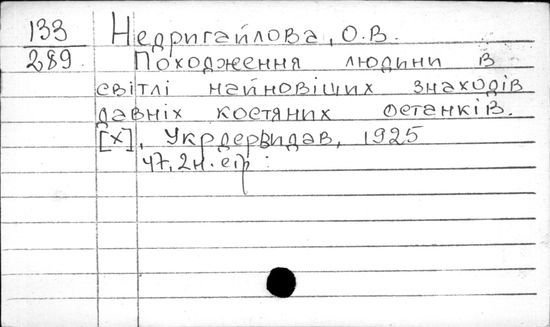 133
289
Недригайлова, О.В.
Походження людини в
світлі найновіших знаходів
давніх костяних останків.
[Х], Укрдержвидав, 1925
47, 2н. стр: